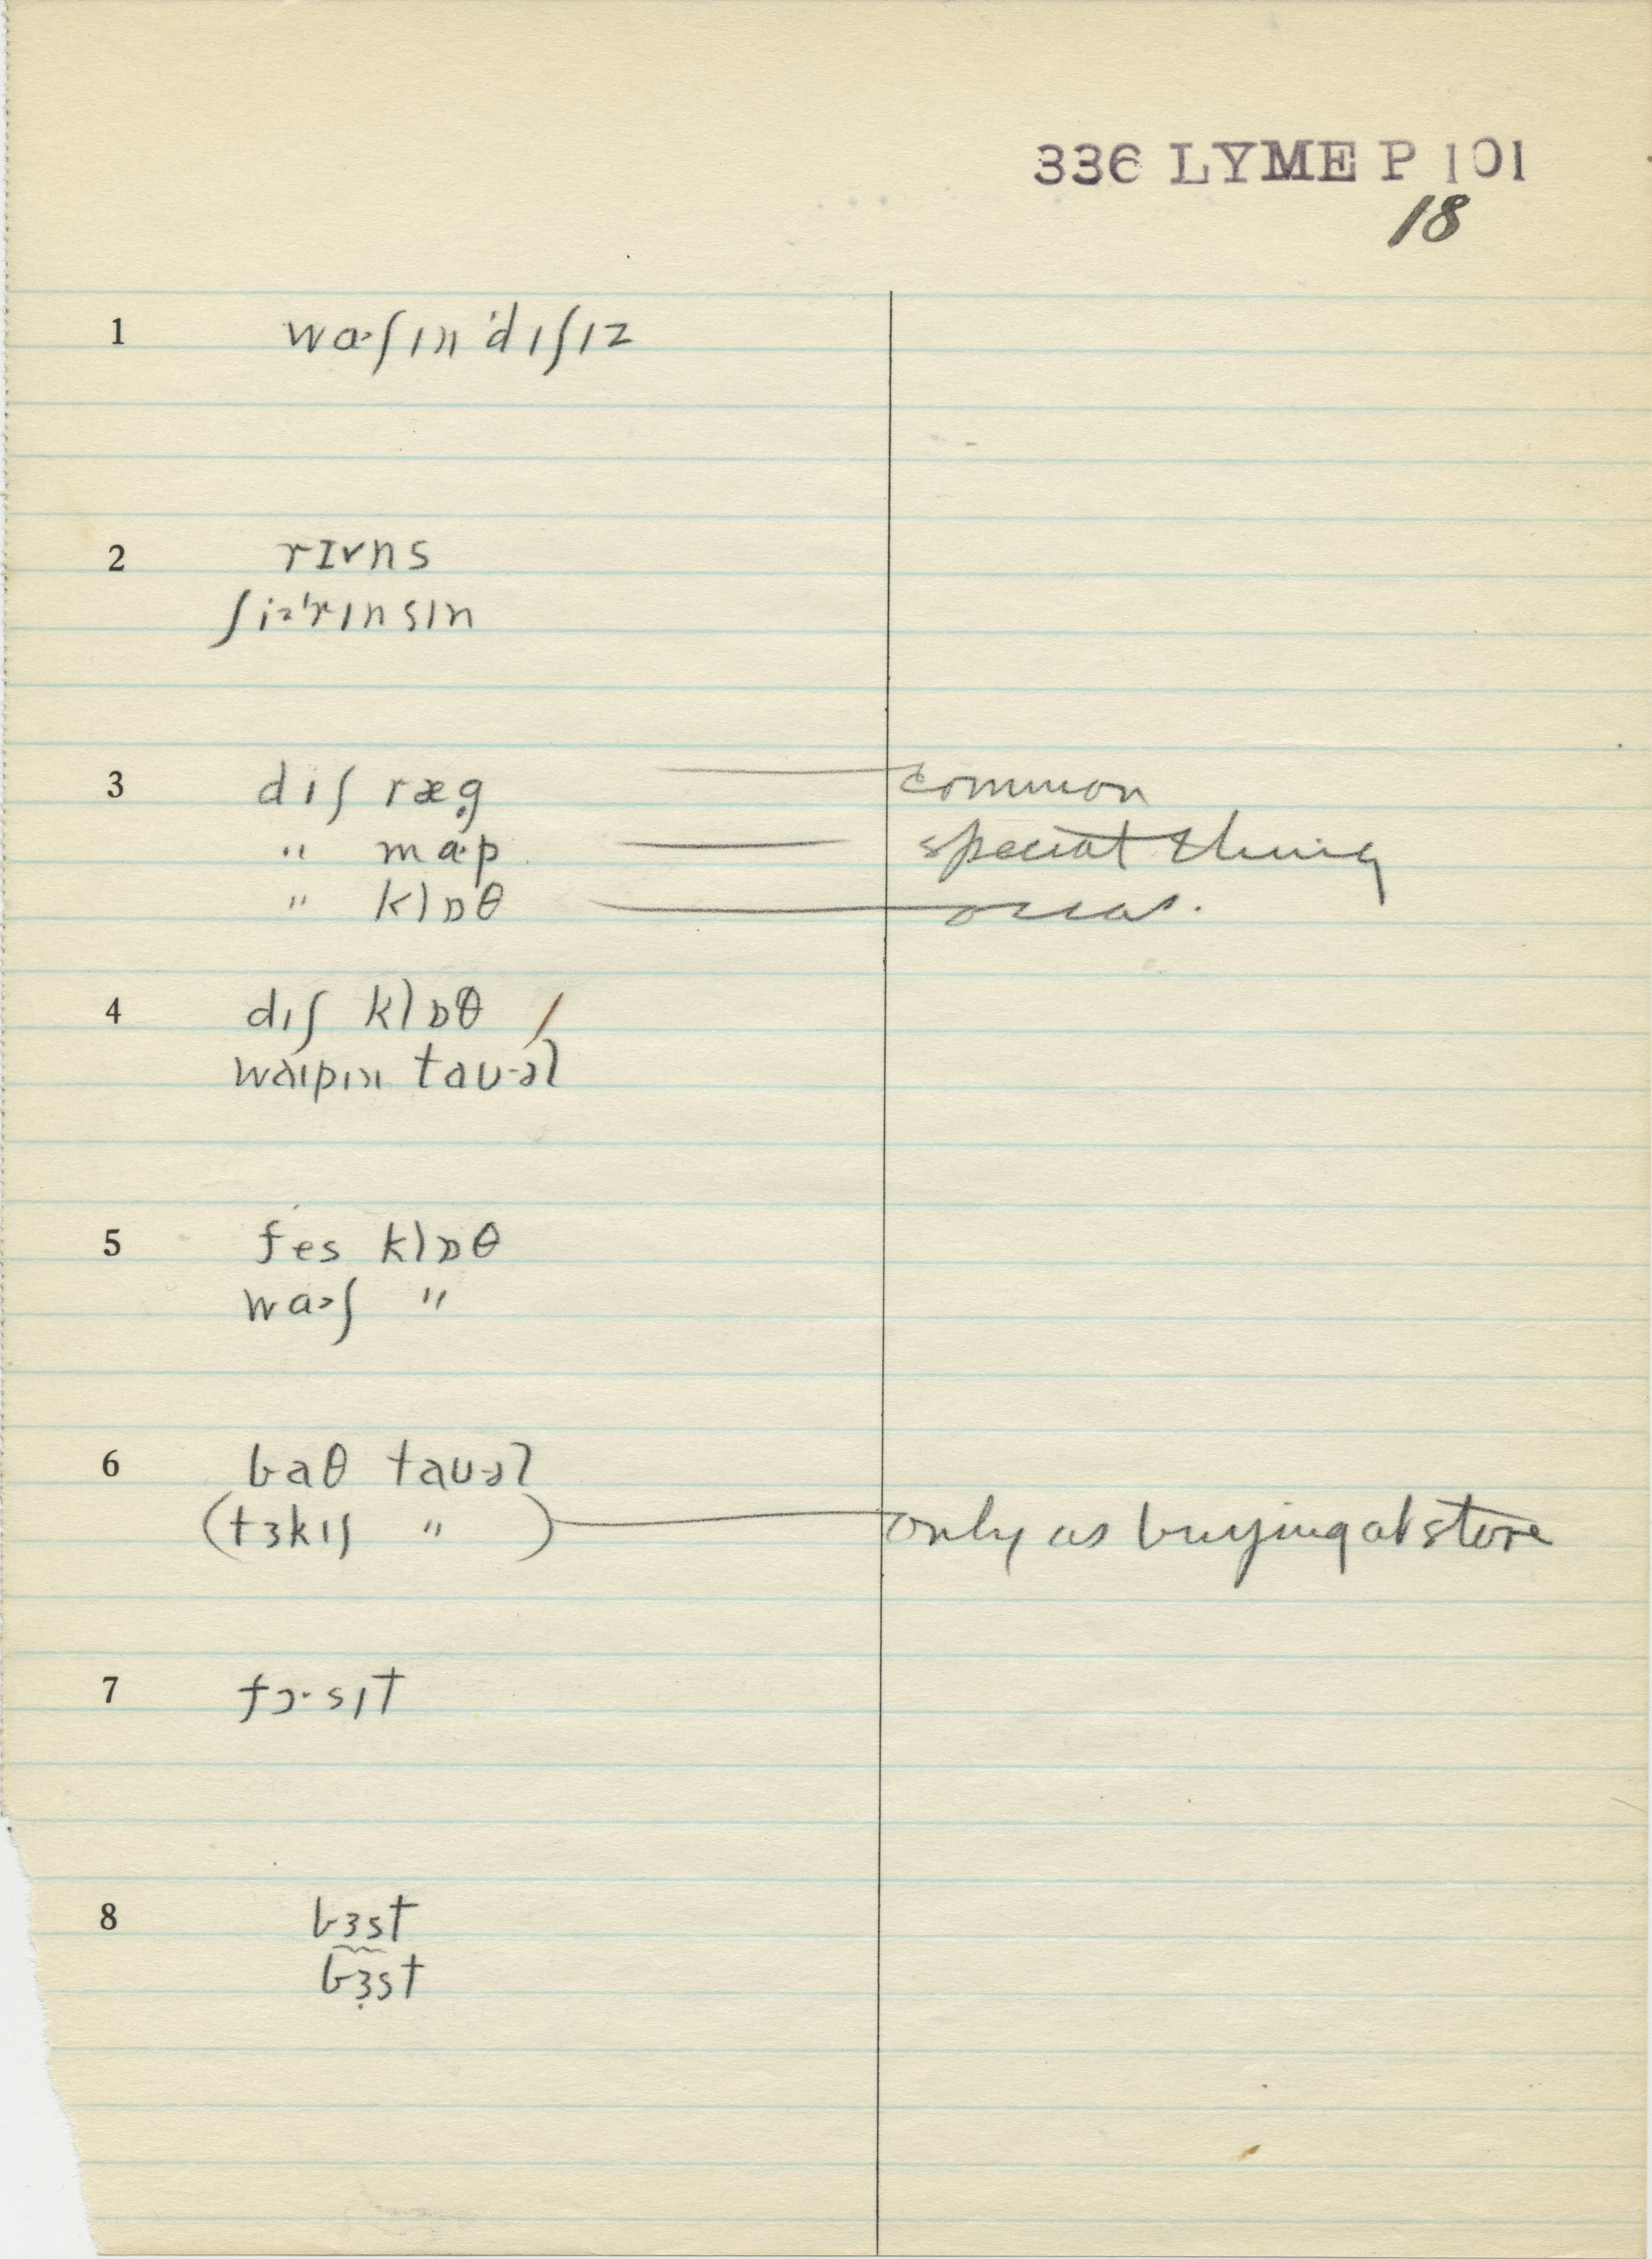 336 LYME P 101
18
1 wɑ·ʃɪn 'dɪʃɪz
2 rɪᵛns
ʃi·z 'rɪnsɪn
3 dɪʃ ræg common
" mɑ·p special thing
" klɒθ occas.
4 dɪʃ klɒθ /
waɪpɪn taʊəl
5 fes klɒθ
wɑ·ʃ "
6 baθ taʊəl
(tɜkɪʃ " ) only as buying at store
7 fɔ·sɪt
8 bɜst
bɜ̣st